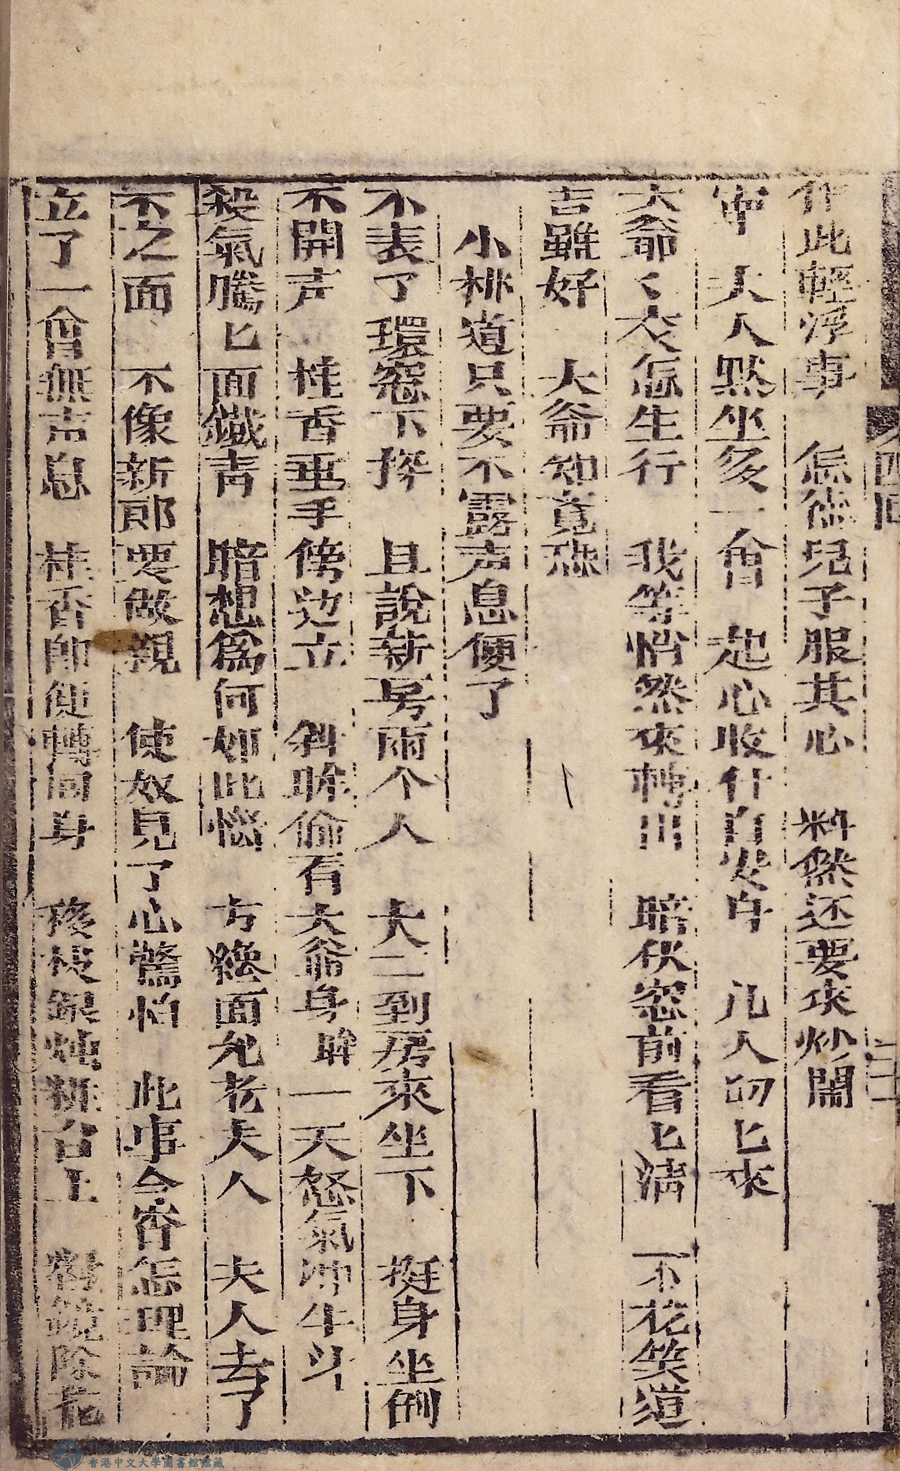 作此輕浮事　怎徳兒子服其心　料然还要來炒閙
寧　夫人默坐多一會　起心收什自安身　几人叨匕來
大爺〻衣怎生行　我等悄然來轉出　暗伏窓前看匕清　一不花笑道
吉雖好　大爺知竟恐
小桃道只要不露声息便了
不表了環窓下捽　且説新房兩个人　大二到房來坐下　挺身坐倒
不開声　桂香垂手傍边立　斜眸偷看大爺身　一天怒氣冲牛斗
殺氣騰匕面鐵青　暗想爲何如此惱　方纔面允老夫人　夫人去了
不之面　不像新郎要做親　使奴見了心驚怕　此事今宵怎理論
立了一會無声息　桂香即便轉回身　移枝銀燭粧台上　對鏡除花
四回
香港中文大學圖書館藏